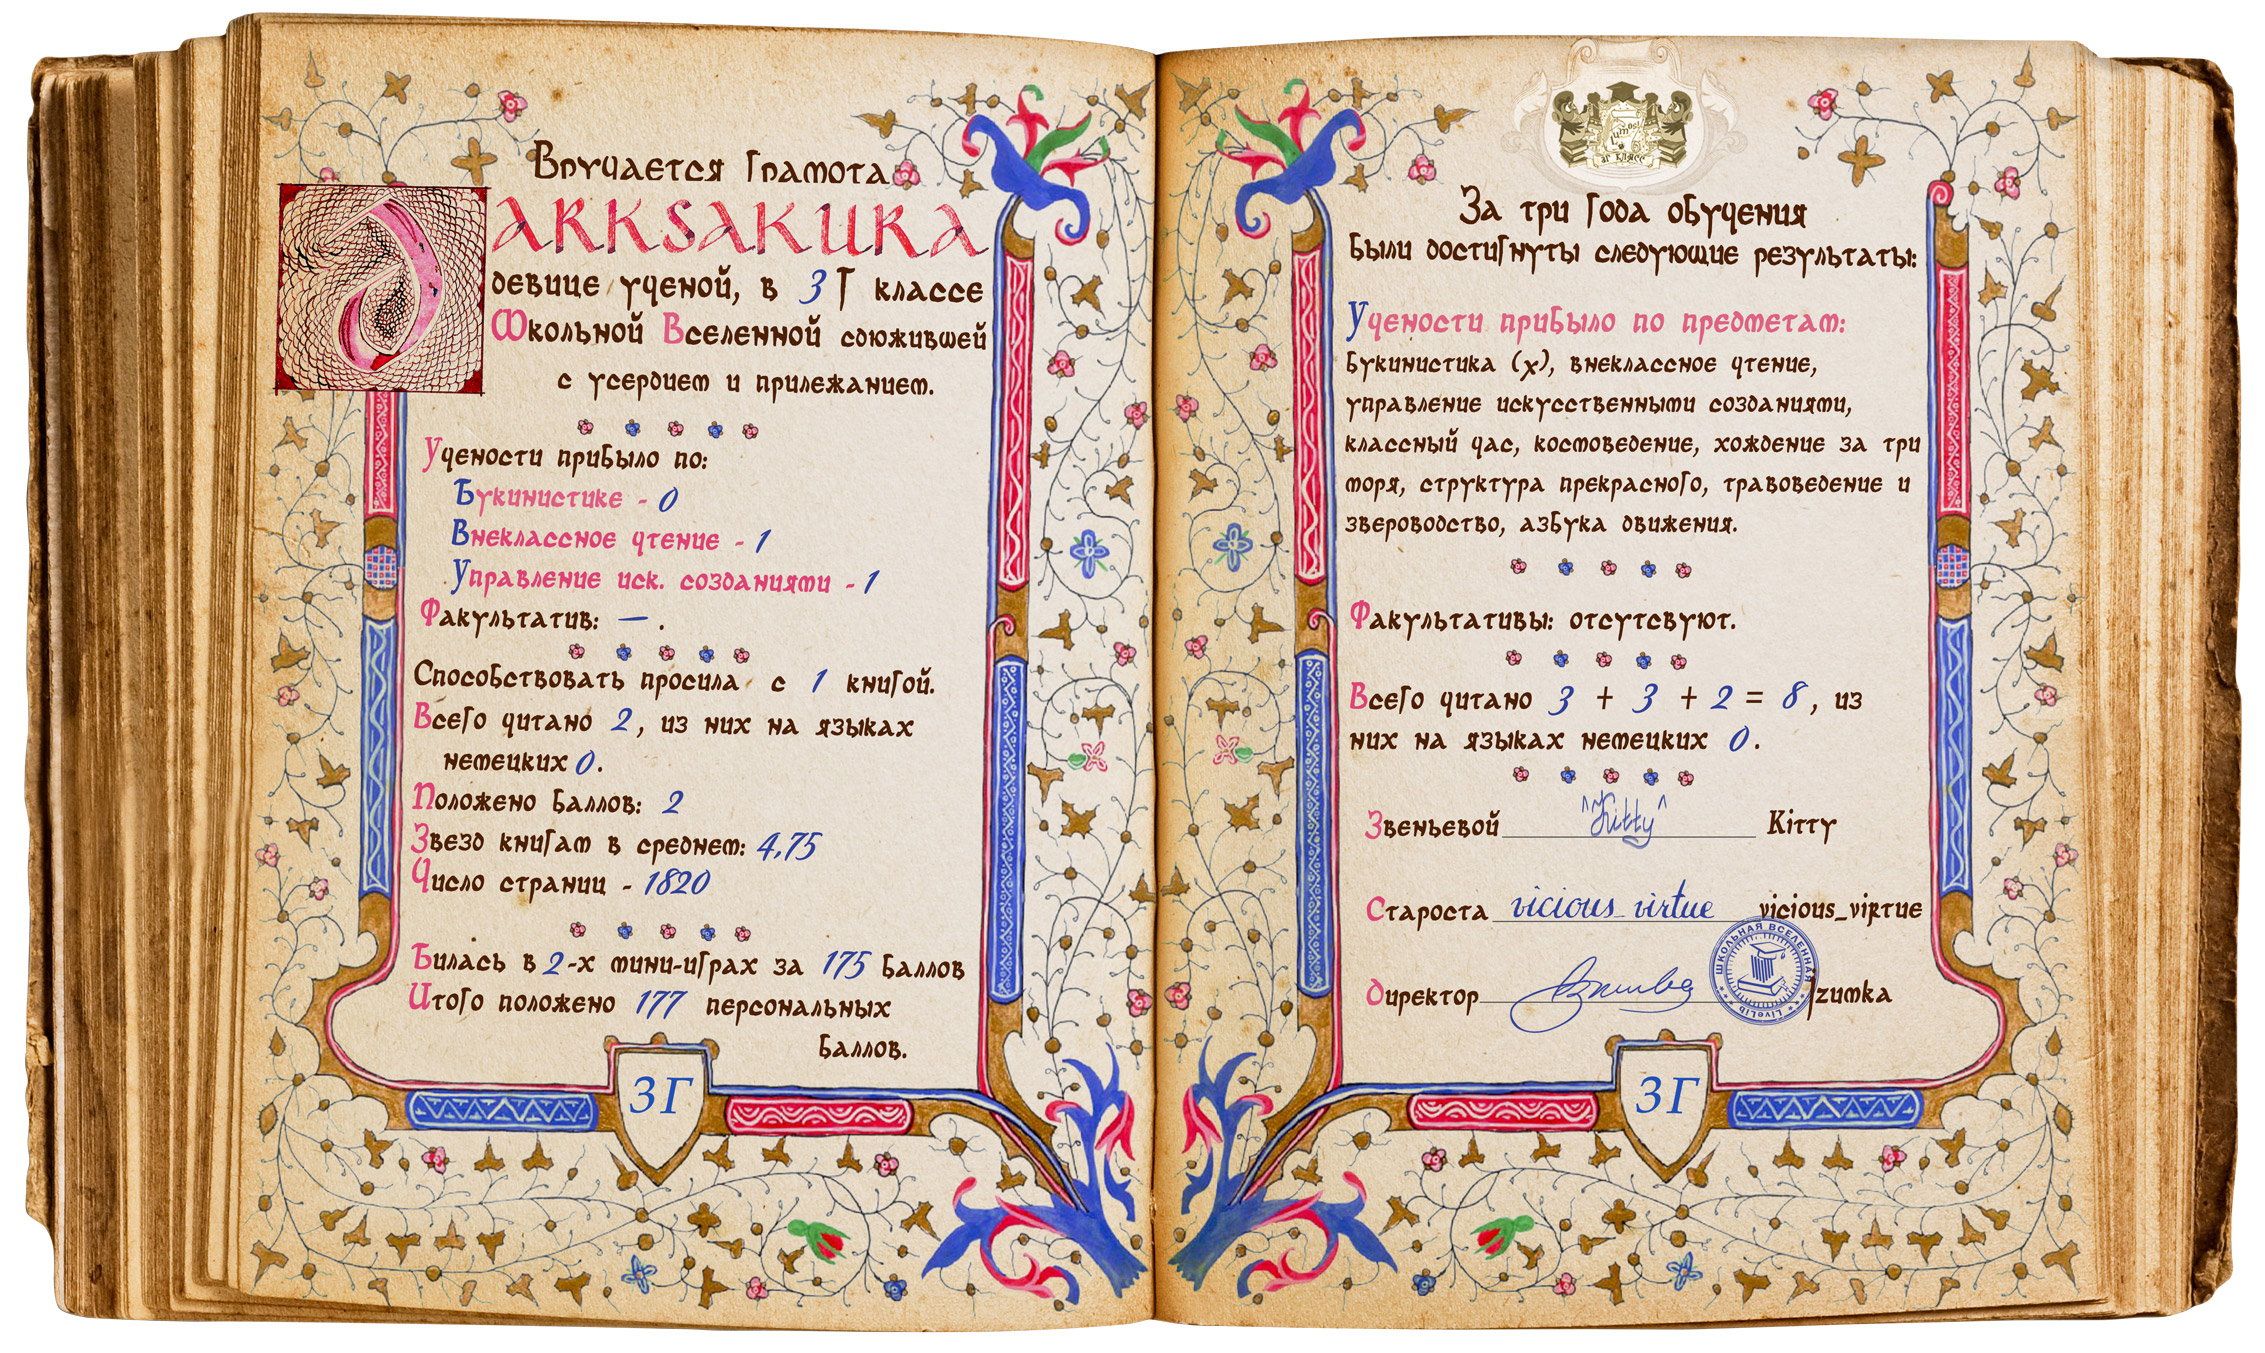 Вручается грамота
DARKSAKURA
девице ученой, в 3Г классе
Школьной Вселенной сдюжившей
с усердием и прилежанием.
Учености прибыло по:
Букинистике - 0
Внеклассное чтение - 1
Управление иск. созданиями - 1
Факультатив: — .
Способствовать просила с 1 книгой.
Всего читано 2, из них на языках
немецких 0.
Положено баллов: 2
Звезд книгам в среднем: 4,75
Число страниц - 1820
Билась в 2-х мини-играх за 175 баллов
Итого положено 177 персональных
баллов.
3Г
3Г класс
За три года обучения
были достигнуты следующие результаты:
Учености прибыло по предметам:
Букинистика (х), внеклассное чтение,
управление искусственными созданиями,
классный час, космоведение, хождение за три
моря, структура прекрасного, травоведение и
звероводство, азбука движения.
Факультативы: отсутсвуют.
Всего читано 3 + 3 + 2 = 8, из
них на языках немецких 0.
Звеньевой ^Kitty^ Kitty
Староста vicious_virtue vicious_virtue
Директор Izumka
ШКОЛЬНАЯ ВСЕЛЕННАЯ
LiveLib
3Г